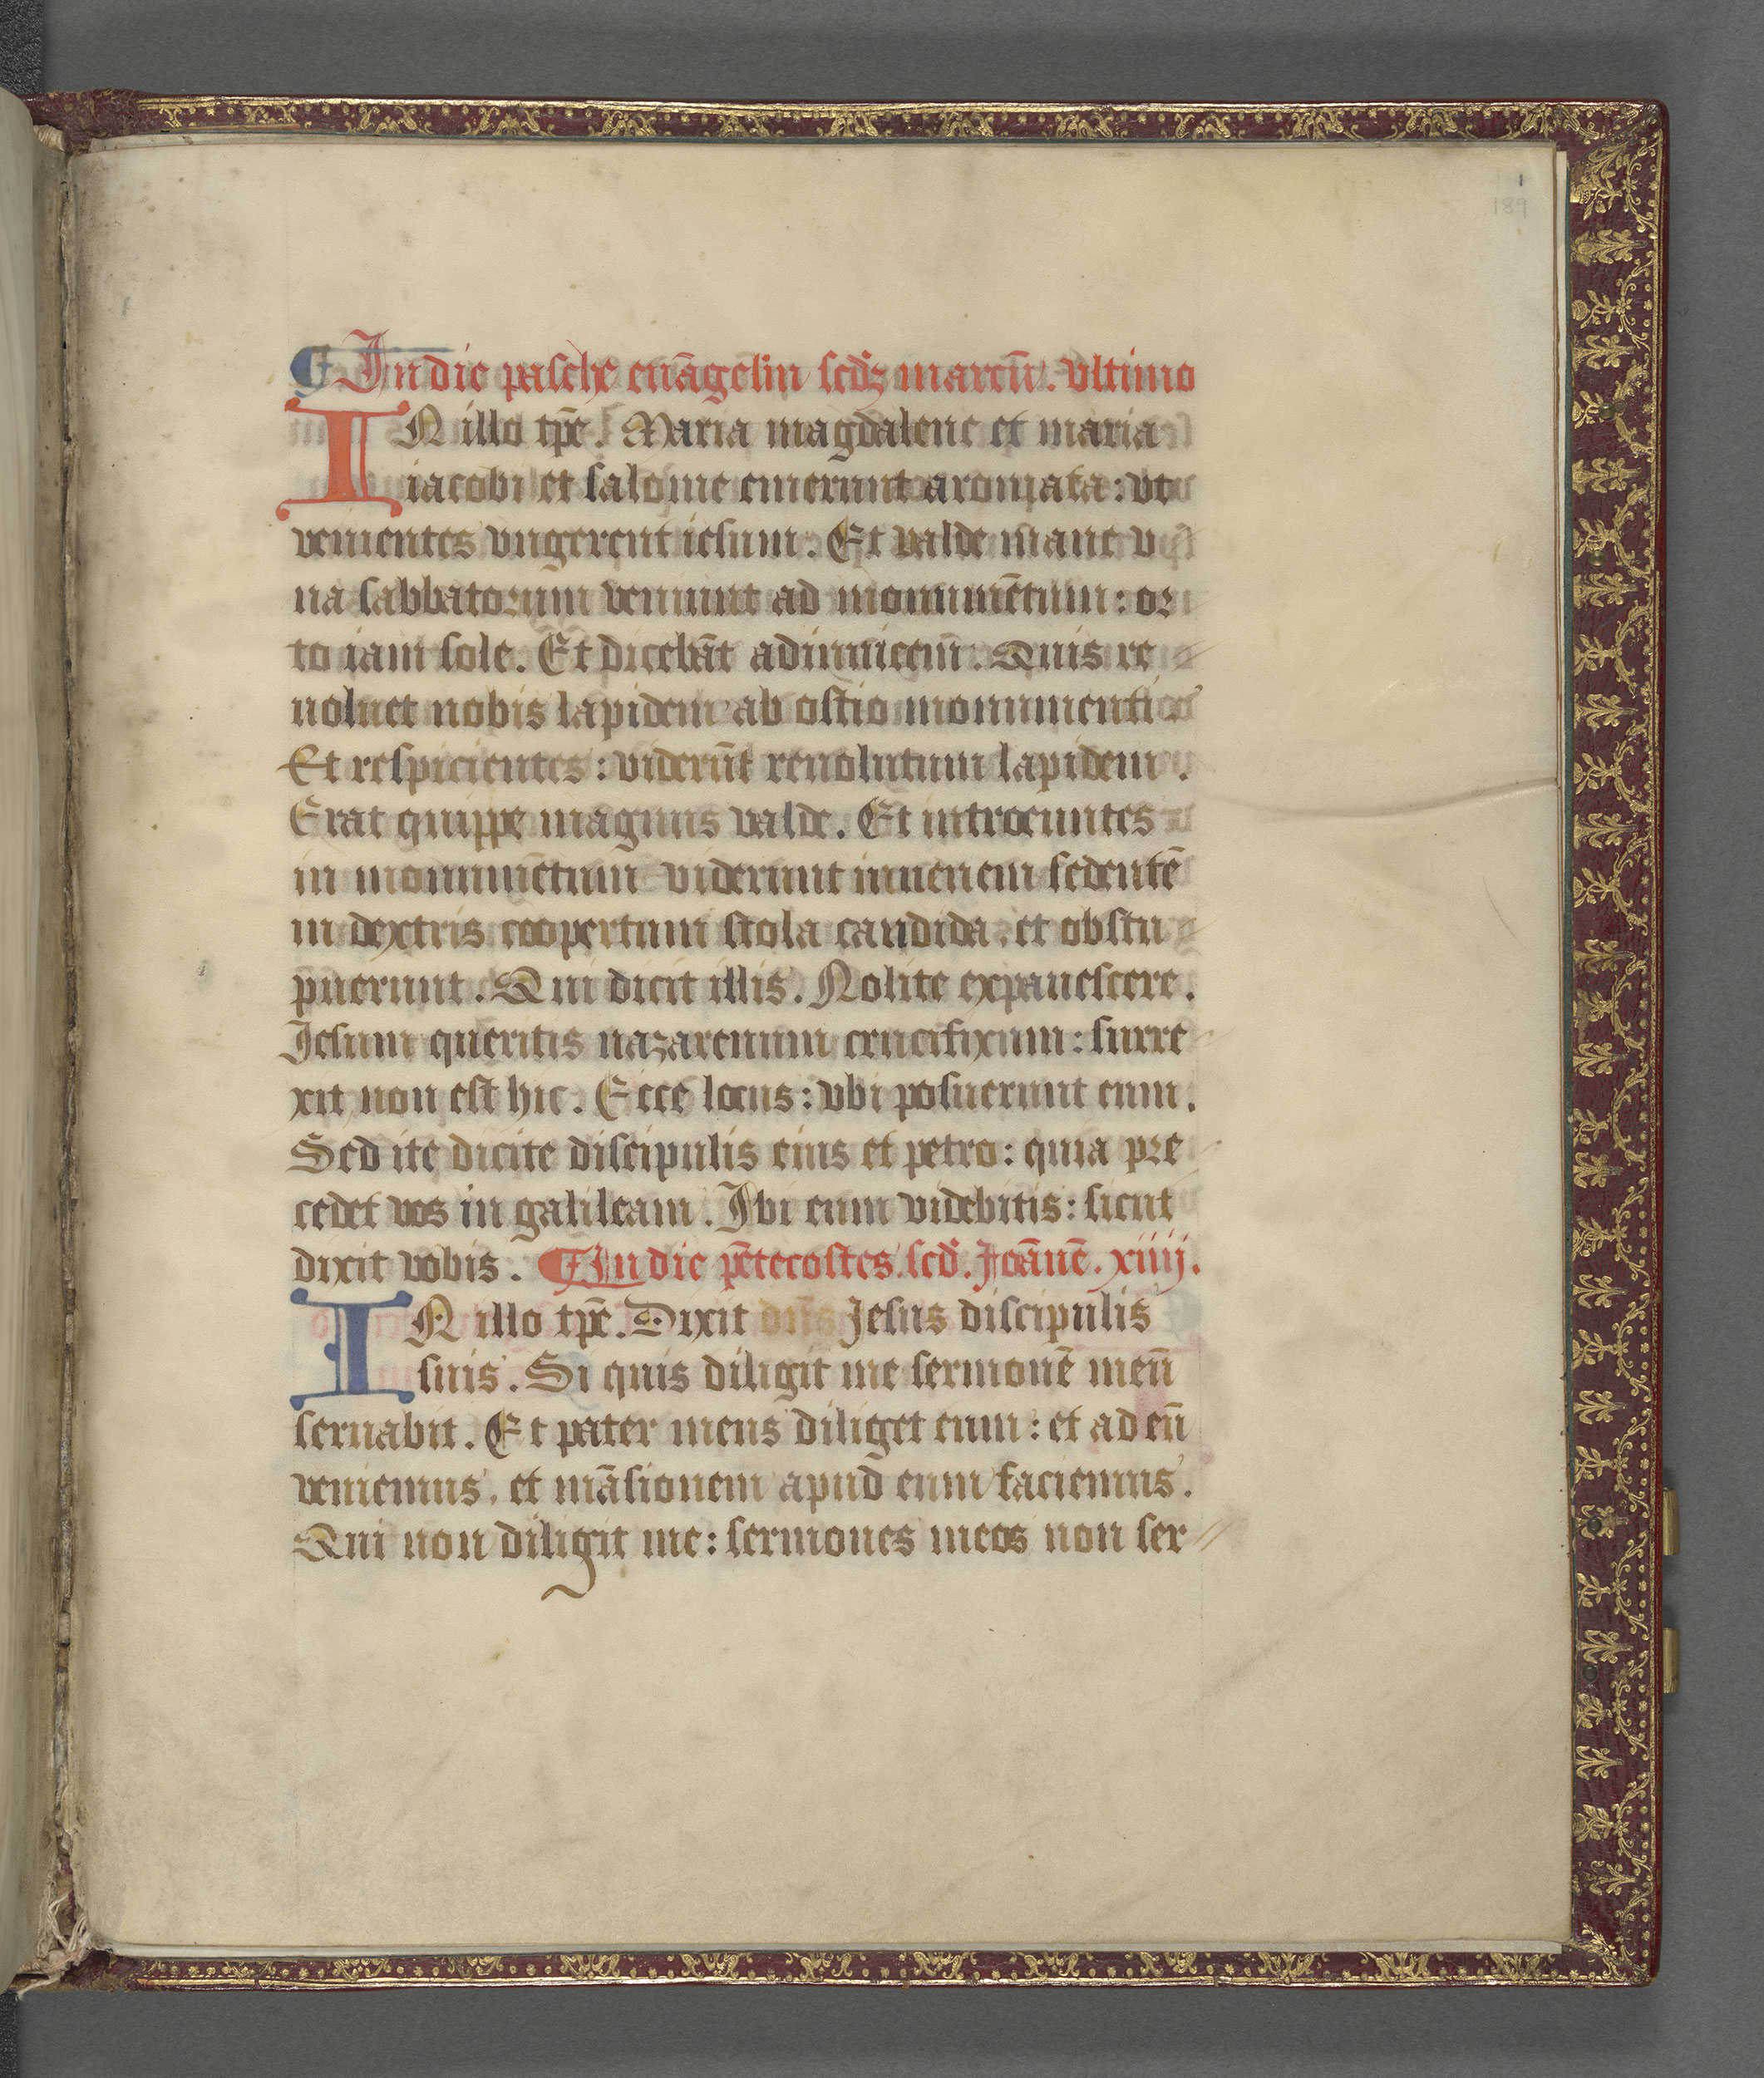 1
189
¶ In die pasche euāgeliū scd̄ꝫ marcū. vltimo
IN illo tp̄e. Maria magdalene et maria
iacobi et salome emerunt aromata: vt
venientes vngerent iesum. Et valde mane v
na sabbatorum veniunt ad monumētum: or
to iam sole. Et dicebāt adinuicem. Quis re
uoluet nobis lapidem ab ostio monumenti
Et respicientes: viderūt reuolutum lapidem.
Erat quippe magnus valde. Et introeuntes
in monumētum viderunt iuuenem sedentē
in dextris coopertum stola candida. et obstu
puerunt. Qui dicit illis. Nolite expauescere.
Jesum queritis nazarenum crucifixum: surre
xit non est hic. Ecce locus: vbi posuerunt eum.
Sed ite dicite discipulis eius et petro: quia pre
cedet vos in galileam. Ibi eum videbitis: sicut
dixit vobis. ¶ In die pētecostes. scd̄. Joānē. xiiij.
IN illo tp̄e. Dixit dn̄s Jesus discipulis
suis. Si quis diligit me sermonē meū
seruabit. Et pater meus diliget eum: et ad eū
veniemus. et māsionem apud eum faciemus.
Qui non diligit me: sermones meos non ser//